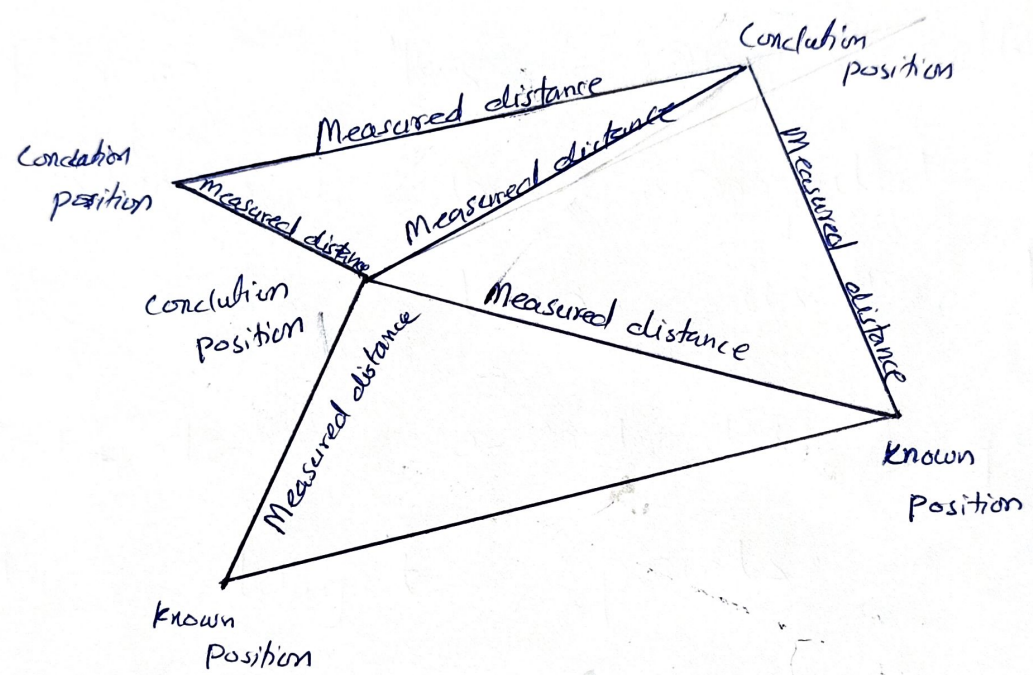 Conclution
position
Measured distance
Measured distance
Measured distance
Conclation
position
Measured distance
Conclution
position
Measured distance
Measured distance
Known
Position
Known
Position